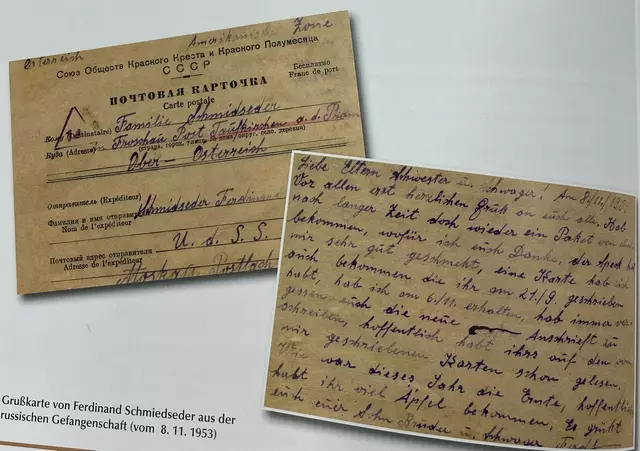 Österreich Amerikanische Zone
Союз Обществ Красного Креста и Красного Полумесяца
СССР
ПОЧТОВАЯ КАРТОЧКА
Carte postale
Бесплатно
Franc de port
Кому (Destinataire) Familie Schmidseder
Куда (Adresse) in Froschau Post Taufkirchen a. d. Pram
(страна, город, улица, № дома, округ, село, деревня)
Ober-Österreich
Отправитель (Expéditeur)
Фамилия и имя отправителя Schmidseder Ferdinand
Nom de l'expéditeur
Почтовый адрес отправителя U. d. S. S.
Adresse de l'expéditeur
Moskau Postfach
Liebe Eltern Schwester u. Schwager! Am 8/11/1953.
Vor allen erst herzlichen Gruß an euch alle. Hab
nach langer Zeit doch wieder ein Paket von
bekommen, wofür ich euch Danke, der Speck hat
mir sehr gut geschmekt, eine Karte hab ich
auch bekommen die ihr am 21./9. geschrieben
habt, hab ich am 6./11. erhalten, hab immer ver
gessen euch die neue Anschrieft zu
schreiben, hoffentlich habt ihrs auf den von
mir geschriebenen Karten schon gelesen,
Wie war dieses Jahr die Ernte, hoffentlich
habt ihr viel Äpfel bekommen, Es grüßt
euch euer Sohn Bruder u. Schwager Ferdl
Grußkarte von Ferdinand Schmiedseder aus der
russischen Gefangenschaft (vom 8. 11. 1953)